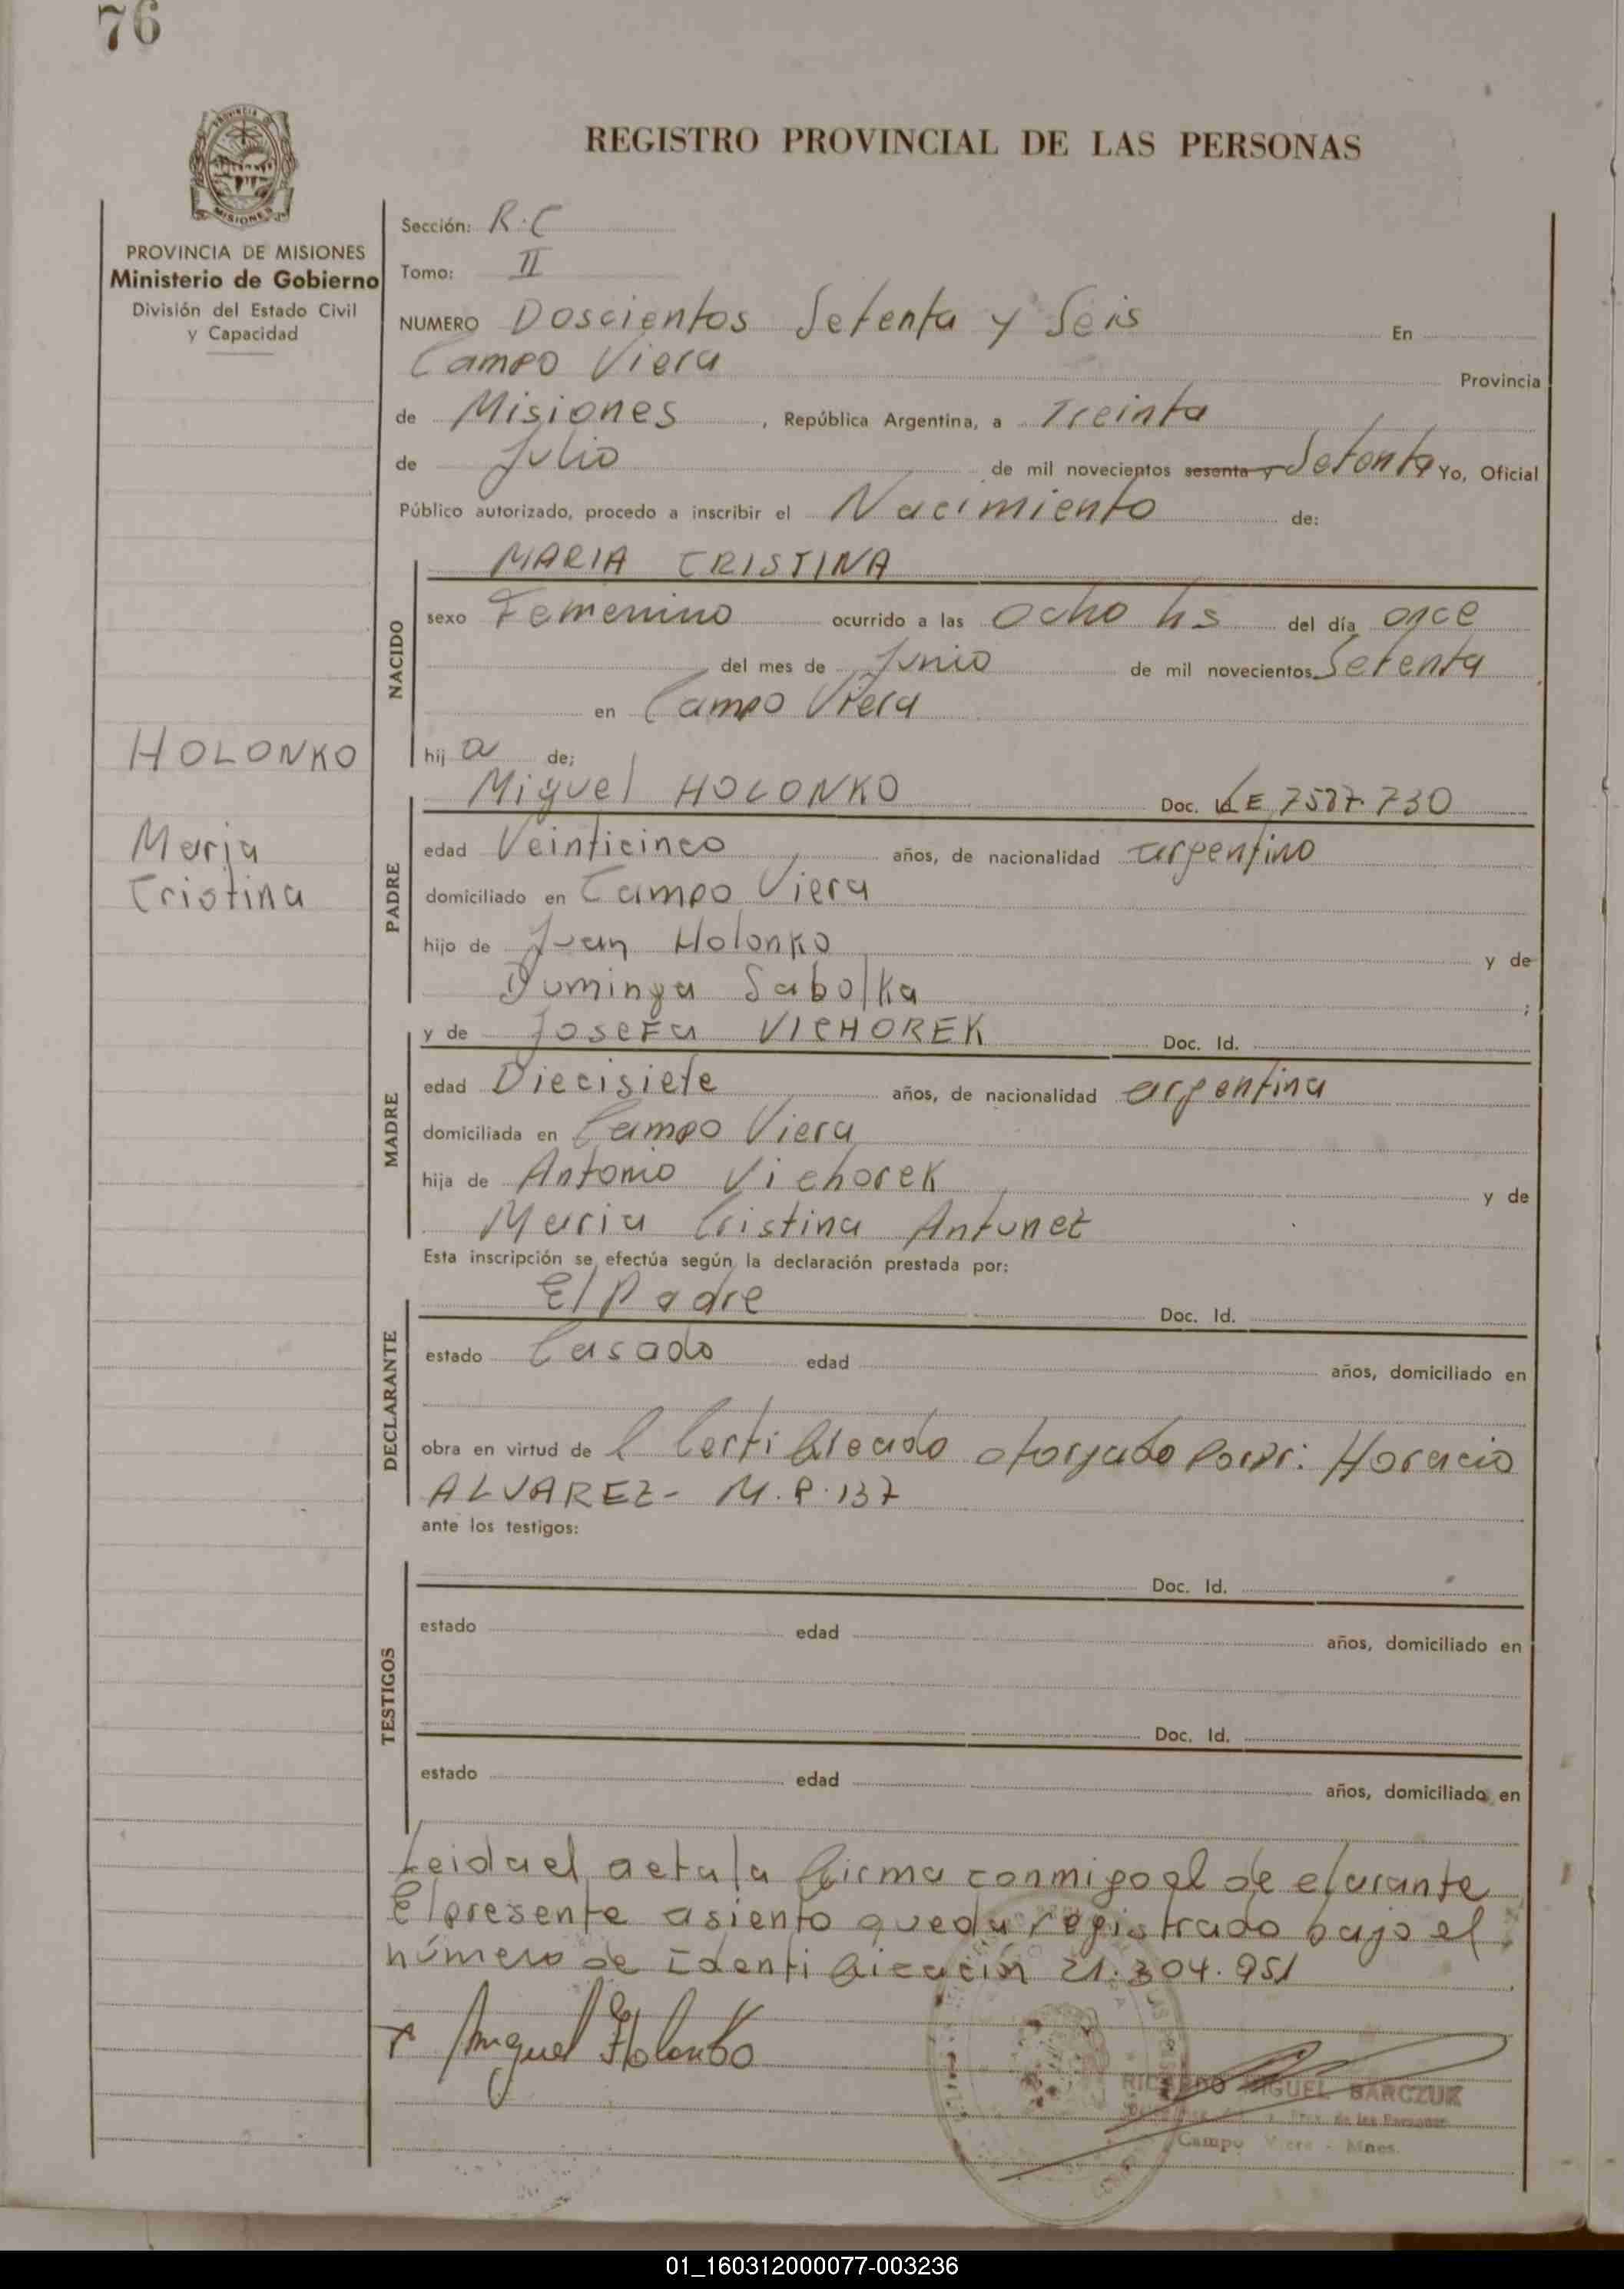 76
REGISTRO PROVINCIAL DE LAS PERSONAS
MISIONES
PROVINCIA DE MISIONES
Ministerio de Gobierno
División del Estado Civil
y Capacidad
Sección: R.C
Tomo: II
NUMERO Doscientos Setenta y Seis En
Campo Viera Provincia
de Misiones, República Argentina, a Treinta
de Julio de mil novecientos sesenta y Setenta Yo, Oficial
Público autorizado, procedo a inscribir el Nacimiento de:
NACIDO
MARIA CRISTINA
sexo Femenino ocurrido a las Ocho hs del día once
del mes de Junio de mil novecientos Setenta
en Campo Viera
hij a de;
HOLONKO
Maria
Cristina
PADRE
Miguel HOLONKO Doc. Id. LE 7587.730
edad Veinticinco años, de nacionalidad argentino
domiciliado en Campo Viera
hijo de Juan Holonko y de
Dominga Sabolka ;
MADRE
y de Josefa VICHOREK Doc. Id.
edad Diecisiete años, de nacionalidad argentina
domiciliada en Campo Viera
hija de Antonio Vichorek y de
Maria Cristina Antunez
Esta inscripción se efectúa según la declaración prestada por:
DECLARANTE
El Padre Doc. Id.
estado Casado edad años, domiciliado en
obra en virtud de l Certificado otorgado Por Dr: Horacio
ALVAREZ- M.P.137
ante los testigos:
TESTIGOS
Doc. Id.
estado edad años, domiciliado en
Doc. Id.
estado edad años, domiciliado en
Leida el acta la firma conmigo el declarante
El presente asiento queda registrado bajo el
número de Identificación 21.304.951
x Miguel Holonko
RICARDO MIGUEL BARCZUK
de las Personas
Campo Viera - Mnes.
01_160312000077-003236